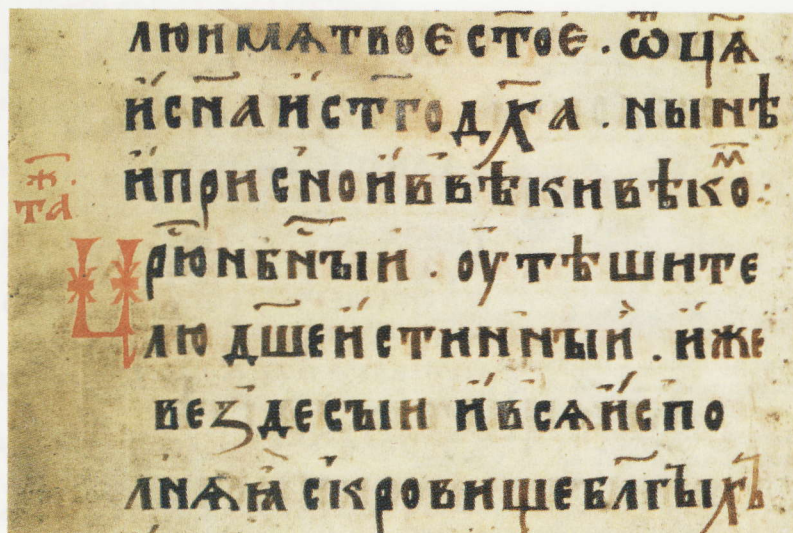 люимѧтвоєст҃оє · ѿц҃ѧ
и҆сн҃аи҆ст҃годх҃а · нынѣ
и҆присноиввѣкивѣкоⷨ :
ж҃
та
Цр҃юнбн҃ыи · оутѣшите
люд҃шеи҆стинныи · и҆же
вездесыи и҆всѧи҆спо
лнѧꙗ скровищебл҃гыхъ